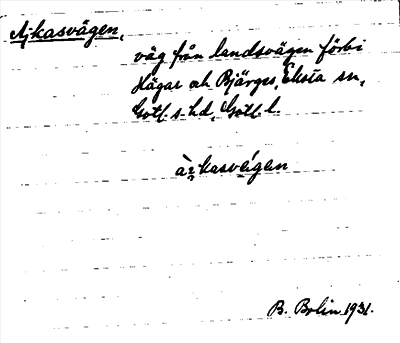 Ajkasvägen,
väg från landsvägen förbi
Hägar och Bjärges, Eksta sn,
Gotl. s. hd, Gotl. l.
àikasvé̜gen
B. Bolin 1931.